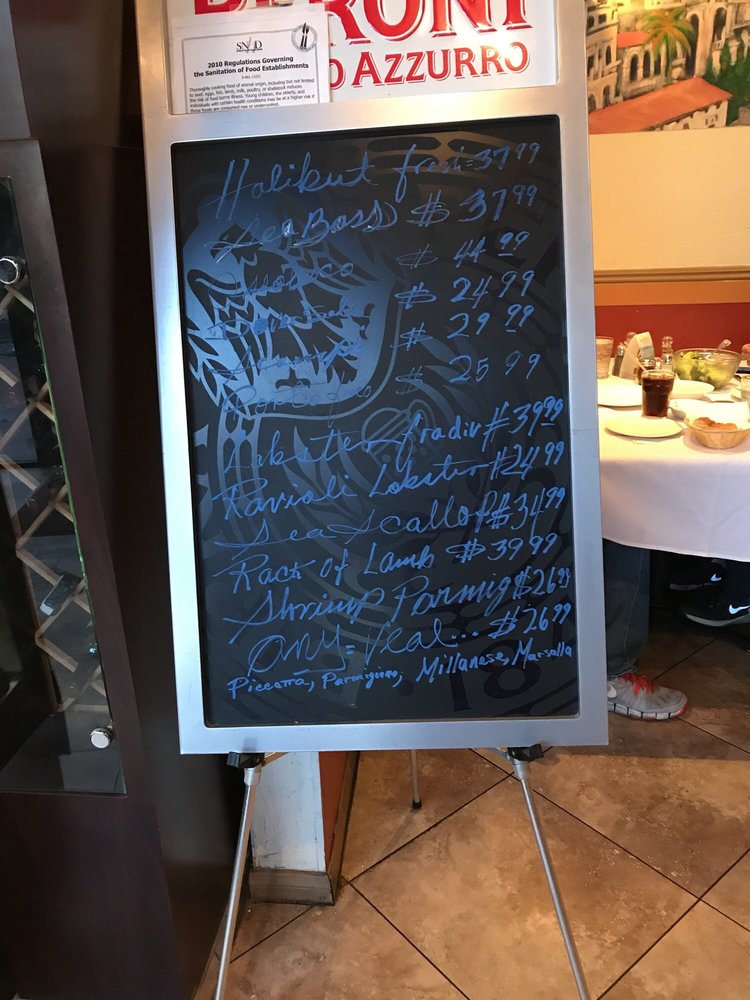 PERONI
O AZZURRO
SN D
2010 Regulations Governing
the Sanitation of Food Establishments
Thoroughly cooking food of animal origin, including but not limited
to beef, eggs, fish, lamb, milk, poultry, or shellstock reduces
the risk of food borne illness. Young children, the elderly, and
individuals with certain health conditions may be at a higher risk if
these foods are consumed raw or undercooked.
Halibut fresh 37 99
Sea Bass $ 37 99
$ 44 99
$ 24 99
$ 29 99
$ 25 99
Lobster fradiv # 39 99
Ravioli Lobster $24 99
Sea Scallop $34 99
Rack of Lamb $ 39 99
Shrimp Parmig $26 99
any = Veal... $ 26 99
Piccatta, Parmigino, Millanese, Marsalla